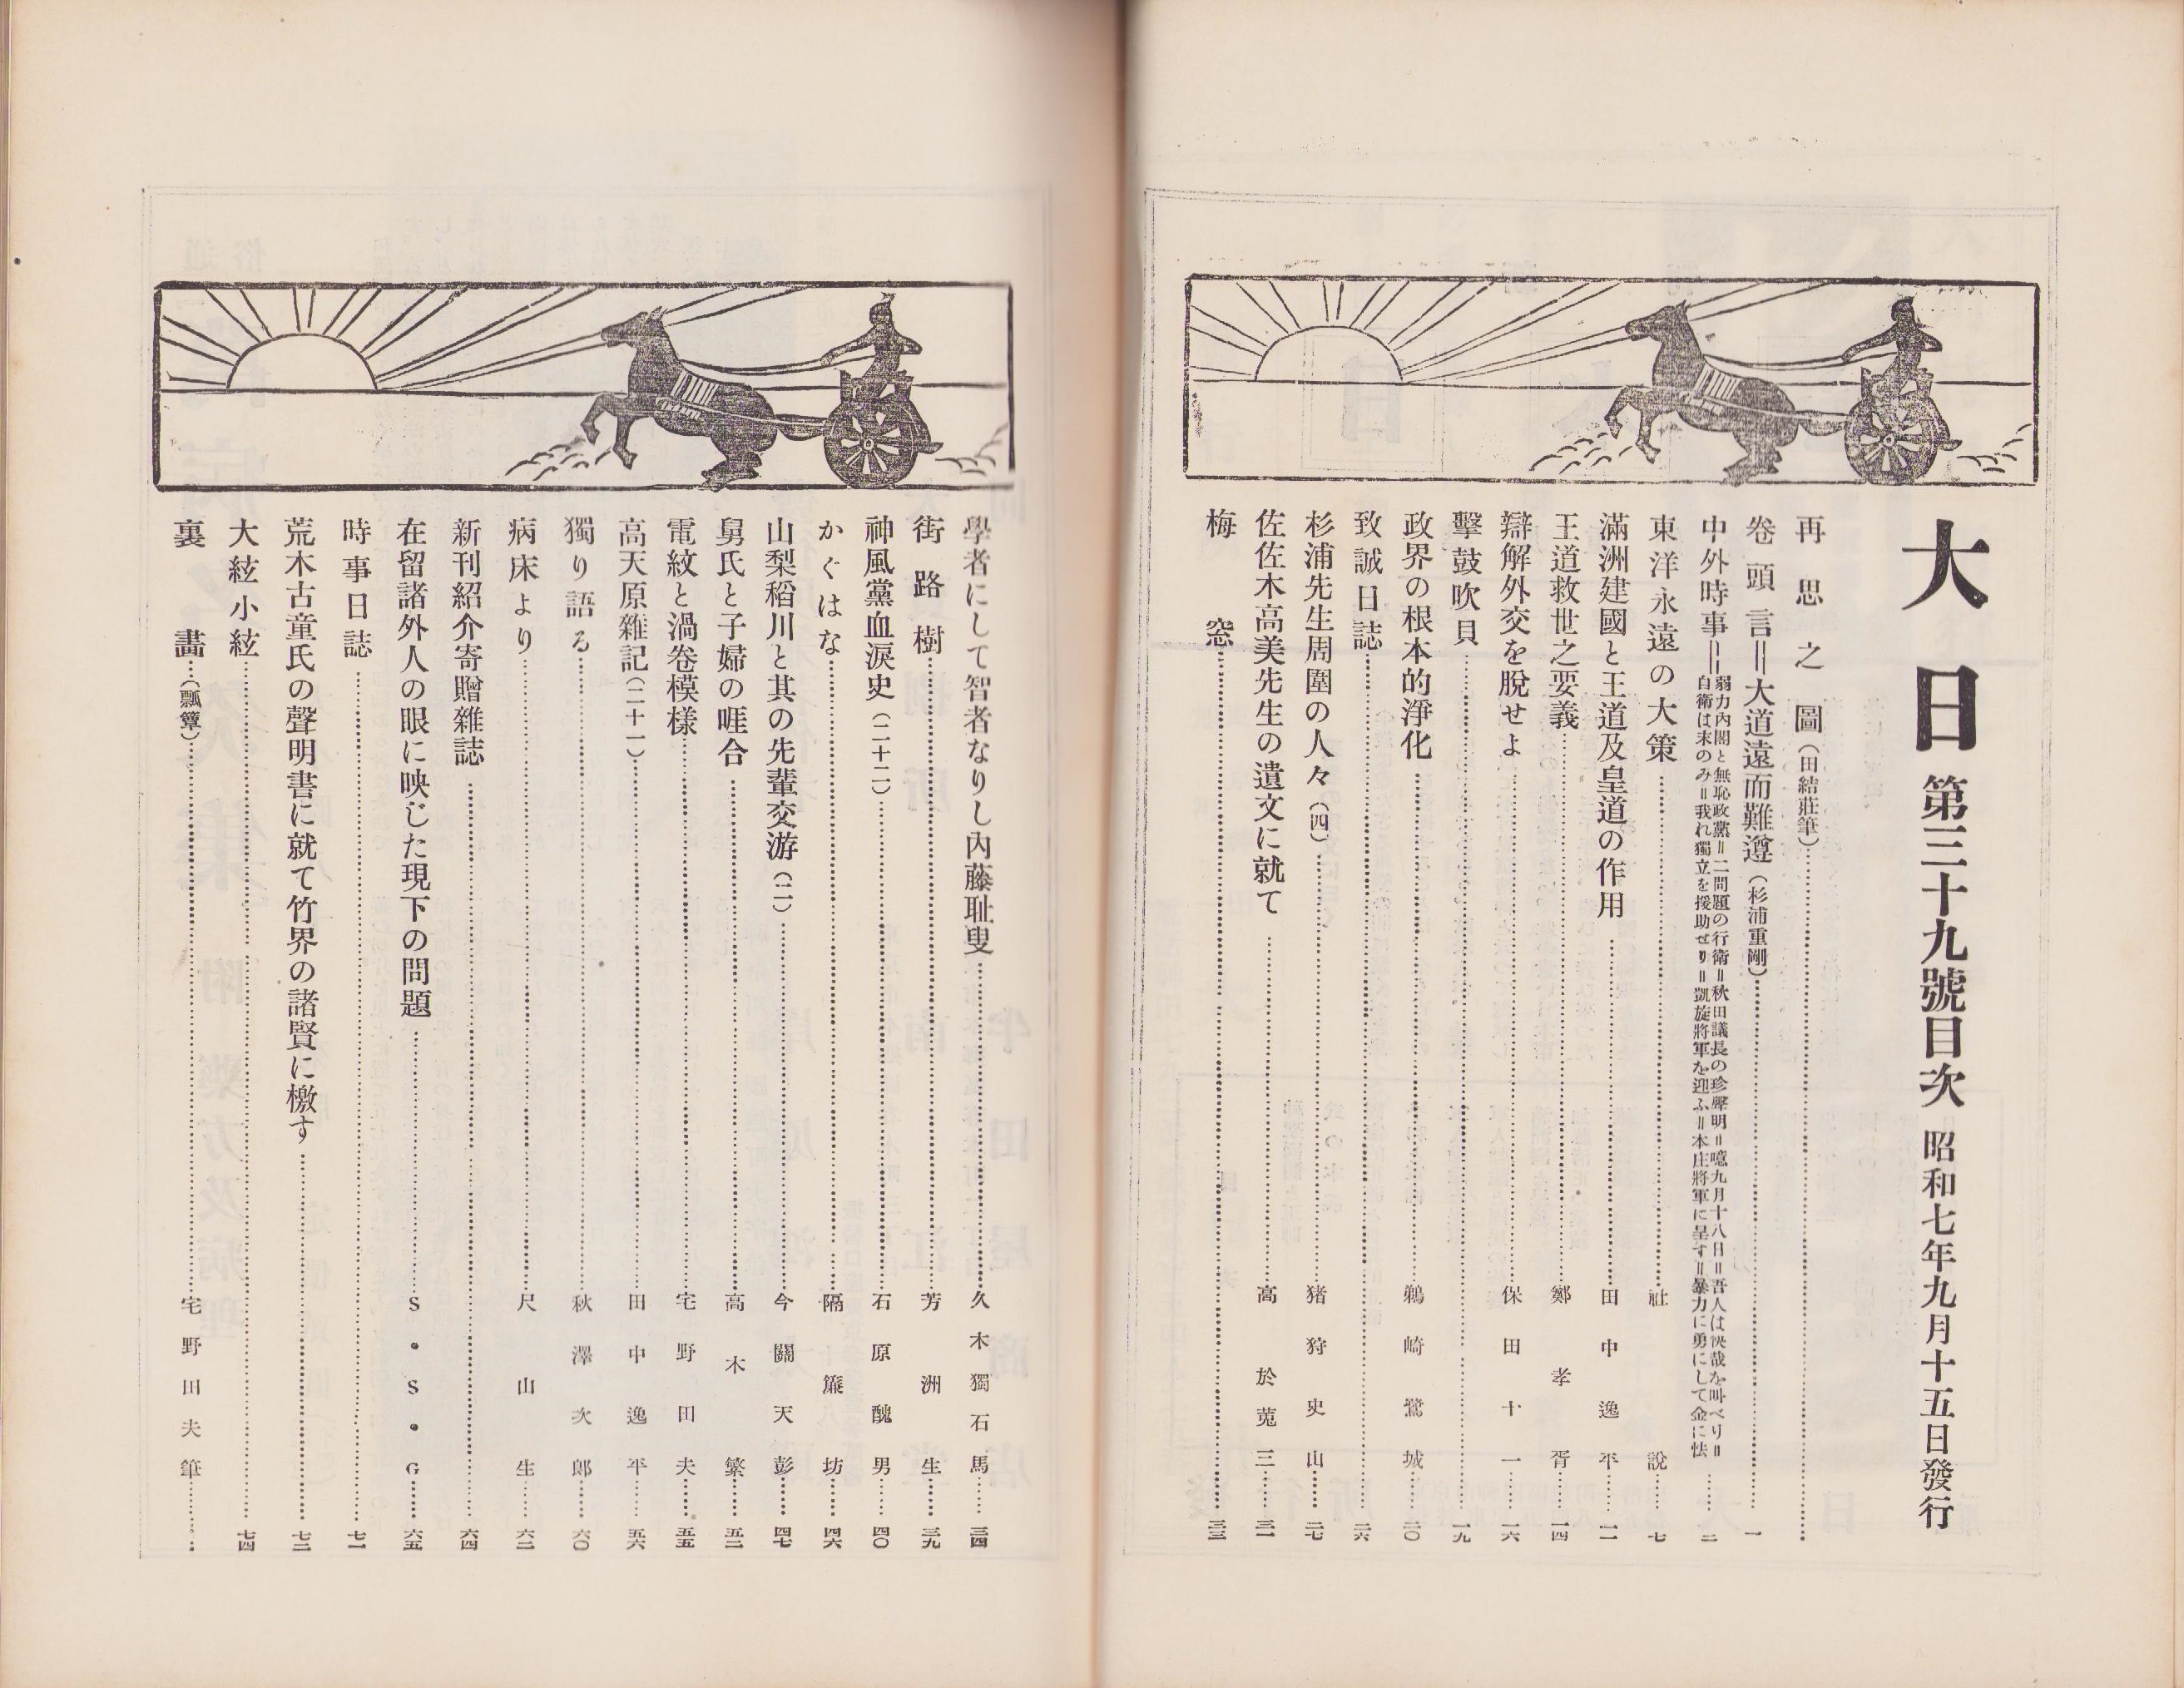 大日 第三十九號目次 昭和七年九月十五日發行
再思之圖（田結莊筆）
卷頭言＝大道遠而難遵（杉浦重剛）一
中外時事＝弱力內閣と無恥政黨＝二問題の行衛＝秋田議長の珍聲明＝噫九月十八日＝吾人は快哉を叫べり＝
自衛は末のみ＝我れ獨立を援助せり＝凱旋將軍を迎ふ＝本庄將軍に呈す＝暴力に勇にして金に怯 二
東洋永遠の大策 社說 七
滿洲建國と王道及皇道の作用 田中逸平 一一
王道救世之要義 鄭孝胥 一四
辯解外交を脫せよ 保田十一 一六
擊鼓吹貝 一九
政界の根本的淨化 鵜崎鷺城 二〇
致誠日誌 二六
杉浦先生周圍の人々（四） 猪狩史山 二七
佐佐木高美先生の遺文に就て 高於菟三 三一
梅窓 三三
學者にして智者なりし內藤耻叟 久木獨石馬 三四
街路樹 芳洲生 三九
神風黨血淚史（二十二） 石原醜男 四〇
かぐはな 隔簾坊 四六
山梨稻川と其の先輩交游（二） 今關天彭 四七
舅氏と子婦の啀合 高木繁 五二
電紋と渦卷模樣 宅野田夫 五五
高天原雜記（二十一） 田中逸平 五六
獨り語る 秋澤次郎 六〇
病床より 尺山生 六二
新刊紹介寄贈雜誌 六四
在留諸外人の眼に映じた現下の問題 S・S・G 六五
時事日誌 七一
荒木古童氏の聲明書に就て竹界の諸賢に檄す 七二
大絃小絃 七四
裏畫（瓢簞） 宅野田夫筆